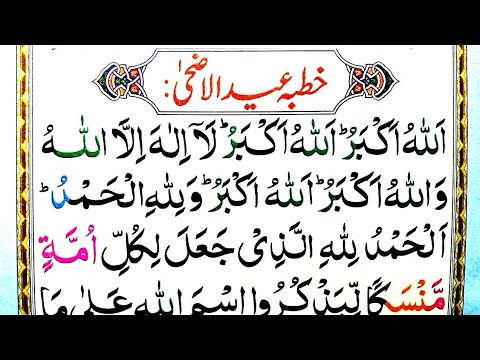 خطبہ عید الاضحیٰ:
اَللّٰهُ اَكْبَرُؕ اَللّٰهُ اَكْبَرُؕ لَاۤ اِلٰهَ اِلَّا اللّٰهُ
وَاللّٰهُ اَكْبَرُؕ اَللّٰهُ اَكْبَرُؕ وَلِلّٰهِ الْحَمْدُؕ
اَلْحَمْدُ لِلّٰهِ الَّذِیْ جَعَلَ لِكُلِّ اُمَّةٍ
مَّنْسَكًا لِّيَذْكُرُوا اسْمَ اللّٰهِ عَلٰی مَا